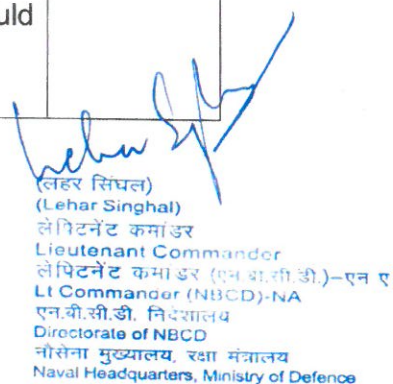 uld
(लहर सिंघल)
(Lehar Singhal)
लेफ्टिनेंट कमांडर
Lieutenant Commander
लेफ्टिनेंट कमांडर (एन.बी.सी.डी.)-एन ए
Lt Commander (NBCD)-NA
एन.बी.सी.डी. निदेशालय
Directorate of NBCD
नौसेना मुख्यालय, रक्षा मंत्रालय
Naval Headquarters, Ministry of Defence